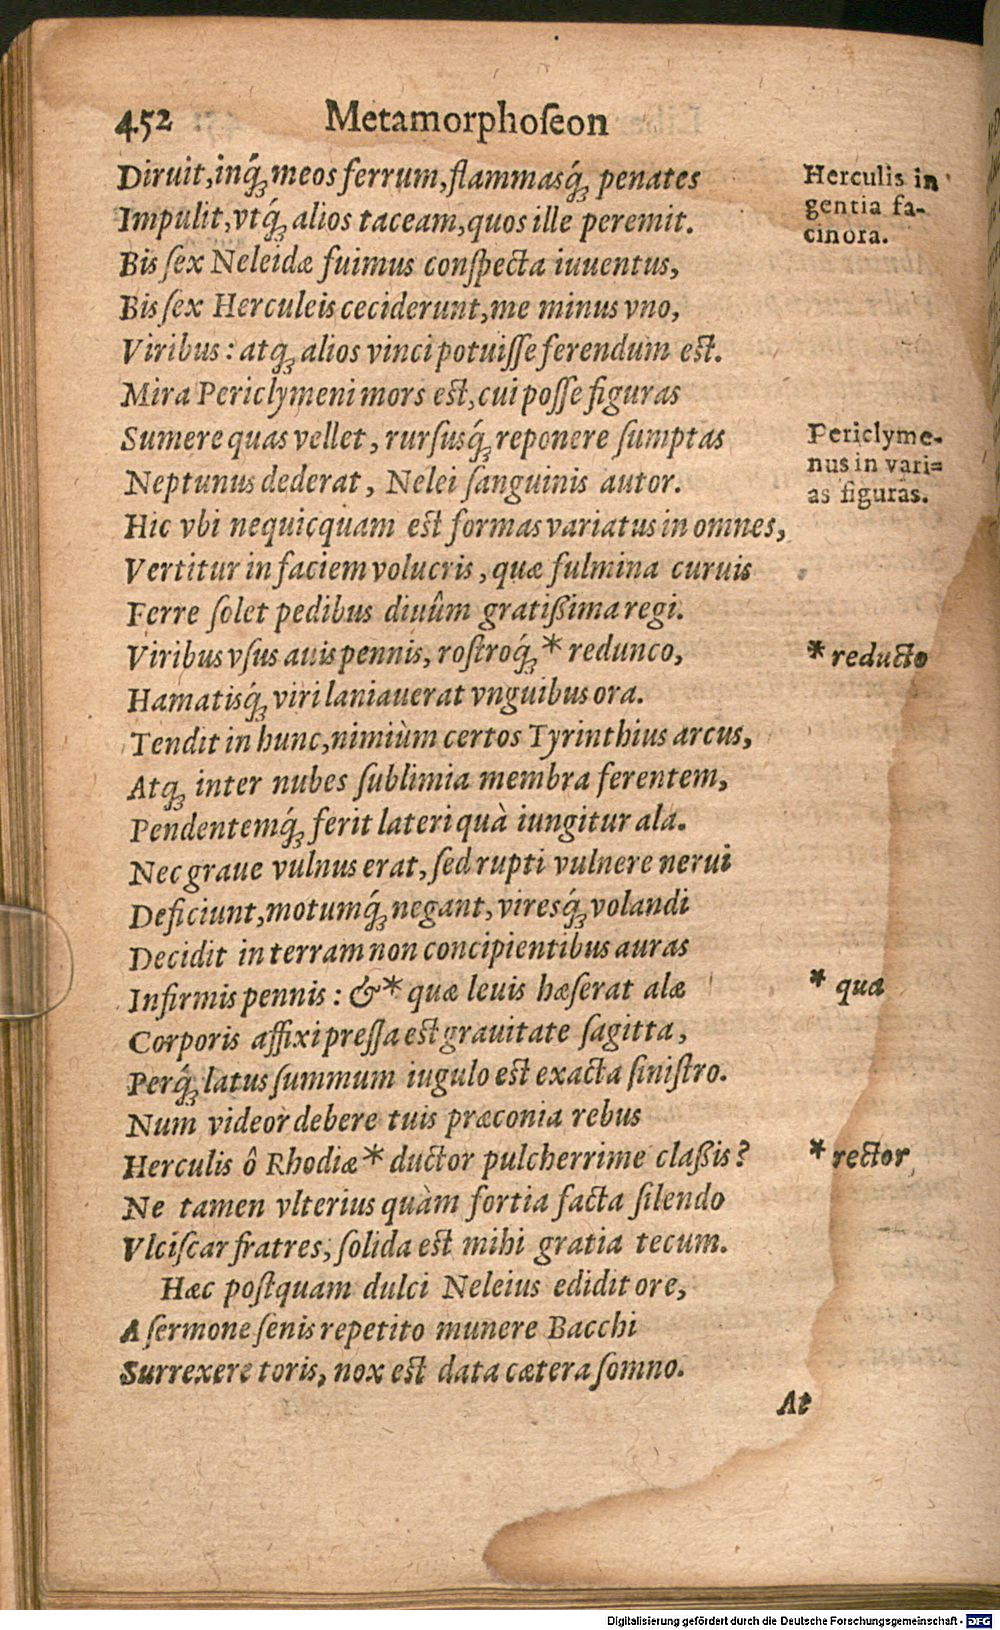 452 Metamorphoſeon
Diruit, inq́; meos ferrum, flammasq́; penates
Impulit, vtq́; alios taceam, quos ille peremit.
Bis ſex Neleidæ fuimus conſpecta iuuentus,
Bis ſex Herculeis ceciderunt, me minus vno,
Viribus: atq; alios vinci potuiſſe ferendum est.
Mira Periclymeni mors est, cui poſſe figuras
Sumere quas vellet, rurſusq́; reponere ſumptas
Neptunus dederat, Nelei ſanguinis autor.
Hic vbi nequicquam est formas variatus in omnes,
Vertitur in faciem volucris, quæ fulmina curuis
Ferre ſolet pedibus diuûm gratißima regi.
Viribus vſus auis pennis, roſtroq́; * redunco,
Hamatisq́; viri laniauerat vnguibus ora.
Tendit in hunc, nimiùm certos Tyrinthius arcus,
Atq; inter nubes ſublimia membra ferentem,
Pendentemq́; ferit lateri quà iungitur ala.
Nec graue vulnus erat, ſed rupti vulnere nerui
Deficiunt, motumq́; negant, viresq́; volandi
Decidit in terram non concipientibus auras
Infirmis pennis: & * quæ leuis hæſerat alæ
Corporis affixi preſſa est grauitate ſagitta,
Perq́; latus ſummum iugulo est exacta ſiniſtro.
Num videor debere tuis præconia rebus
Herculis ô Rhodiæ * ductor pulcherrime claßis?
Ne tamen vlterius quàm fortia facta ſilendo
Vlciſcar fratres, ſolida est mihi gratia tecum.
Hæc poſtquam dulci Neleius edidit ore,
A ſermone ſenis repetito munere Bacchi
Surrexere toris, nox est data cætera ſomno.
At
Herculis in
gentia fa-
cinora.
Periclyme-
nus in vari=
as figuras.
* reducto
* qua
* rector
Digitalisierung gefördert durch die Deutsche Forschungsgemeinschaft - DFG